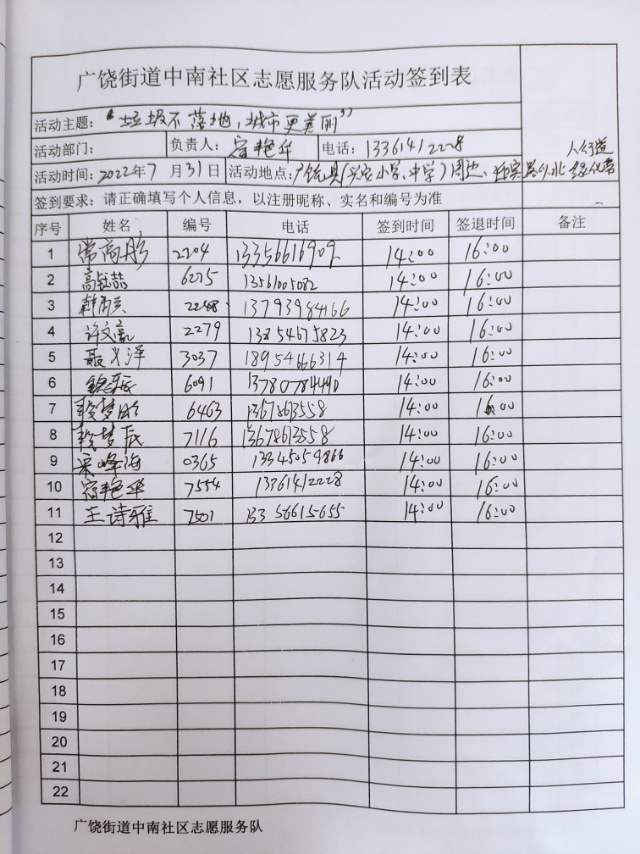 广饶街道中南社区志愿服务队活动签到表
活动主题:“垃圾不落地,城市更美丽”
活动部门: 负责人:宿艳华 电话:13361412228
活动时间:2022年7月31日 活动地点:广饶县(实验小学、中学)周边、 人行道 绿化带
签到要求:请正确填写个人信息,以注册昵称、实名和编号为准
序号 姓名 编号 电话 签到时间 签退时间 备注
1 常商彤 2204 13356616909 14:00 16:00
2 6275 13561005082 14:00 16:00
3 2248 13793984166 14:00 16:00
4 许文 2279 13854675823 14:00 16:00
5 聂义泽 3037 18954666314 14:00 16:00
6 6091 13780784440 14:00 16:00
7 6463 1367863558 14:00 16:00
8 7116 13678613558 14:00 16:00
9 宋峰海 0365 13345059866 14:00 16:00
10 宿艳华 7554 13361412228 14:00 16:00
11 王诗雅 7501 13356615655 14:00 16:00
12
13
14
15
16
17
18
19
20
21
22
广饶街道中南社区志愿服务队